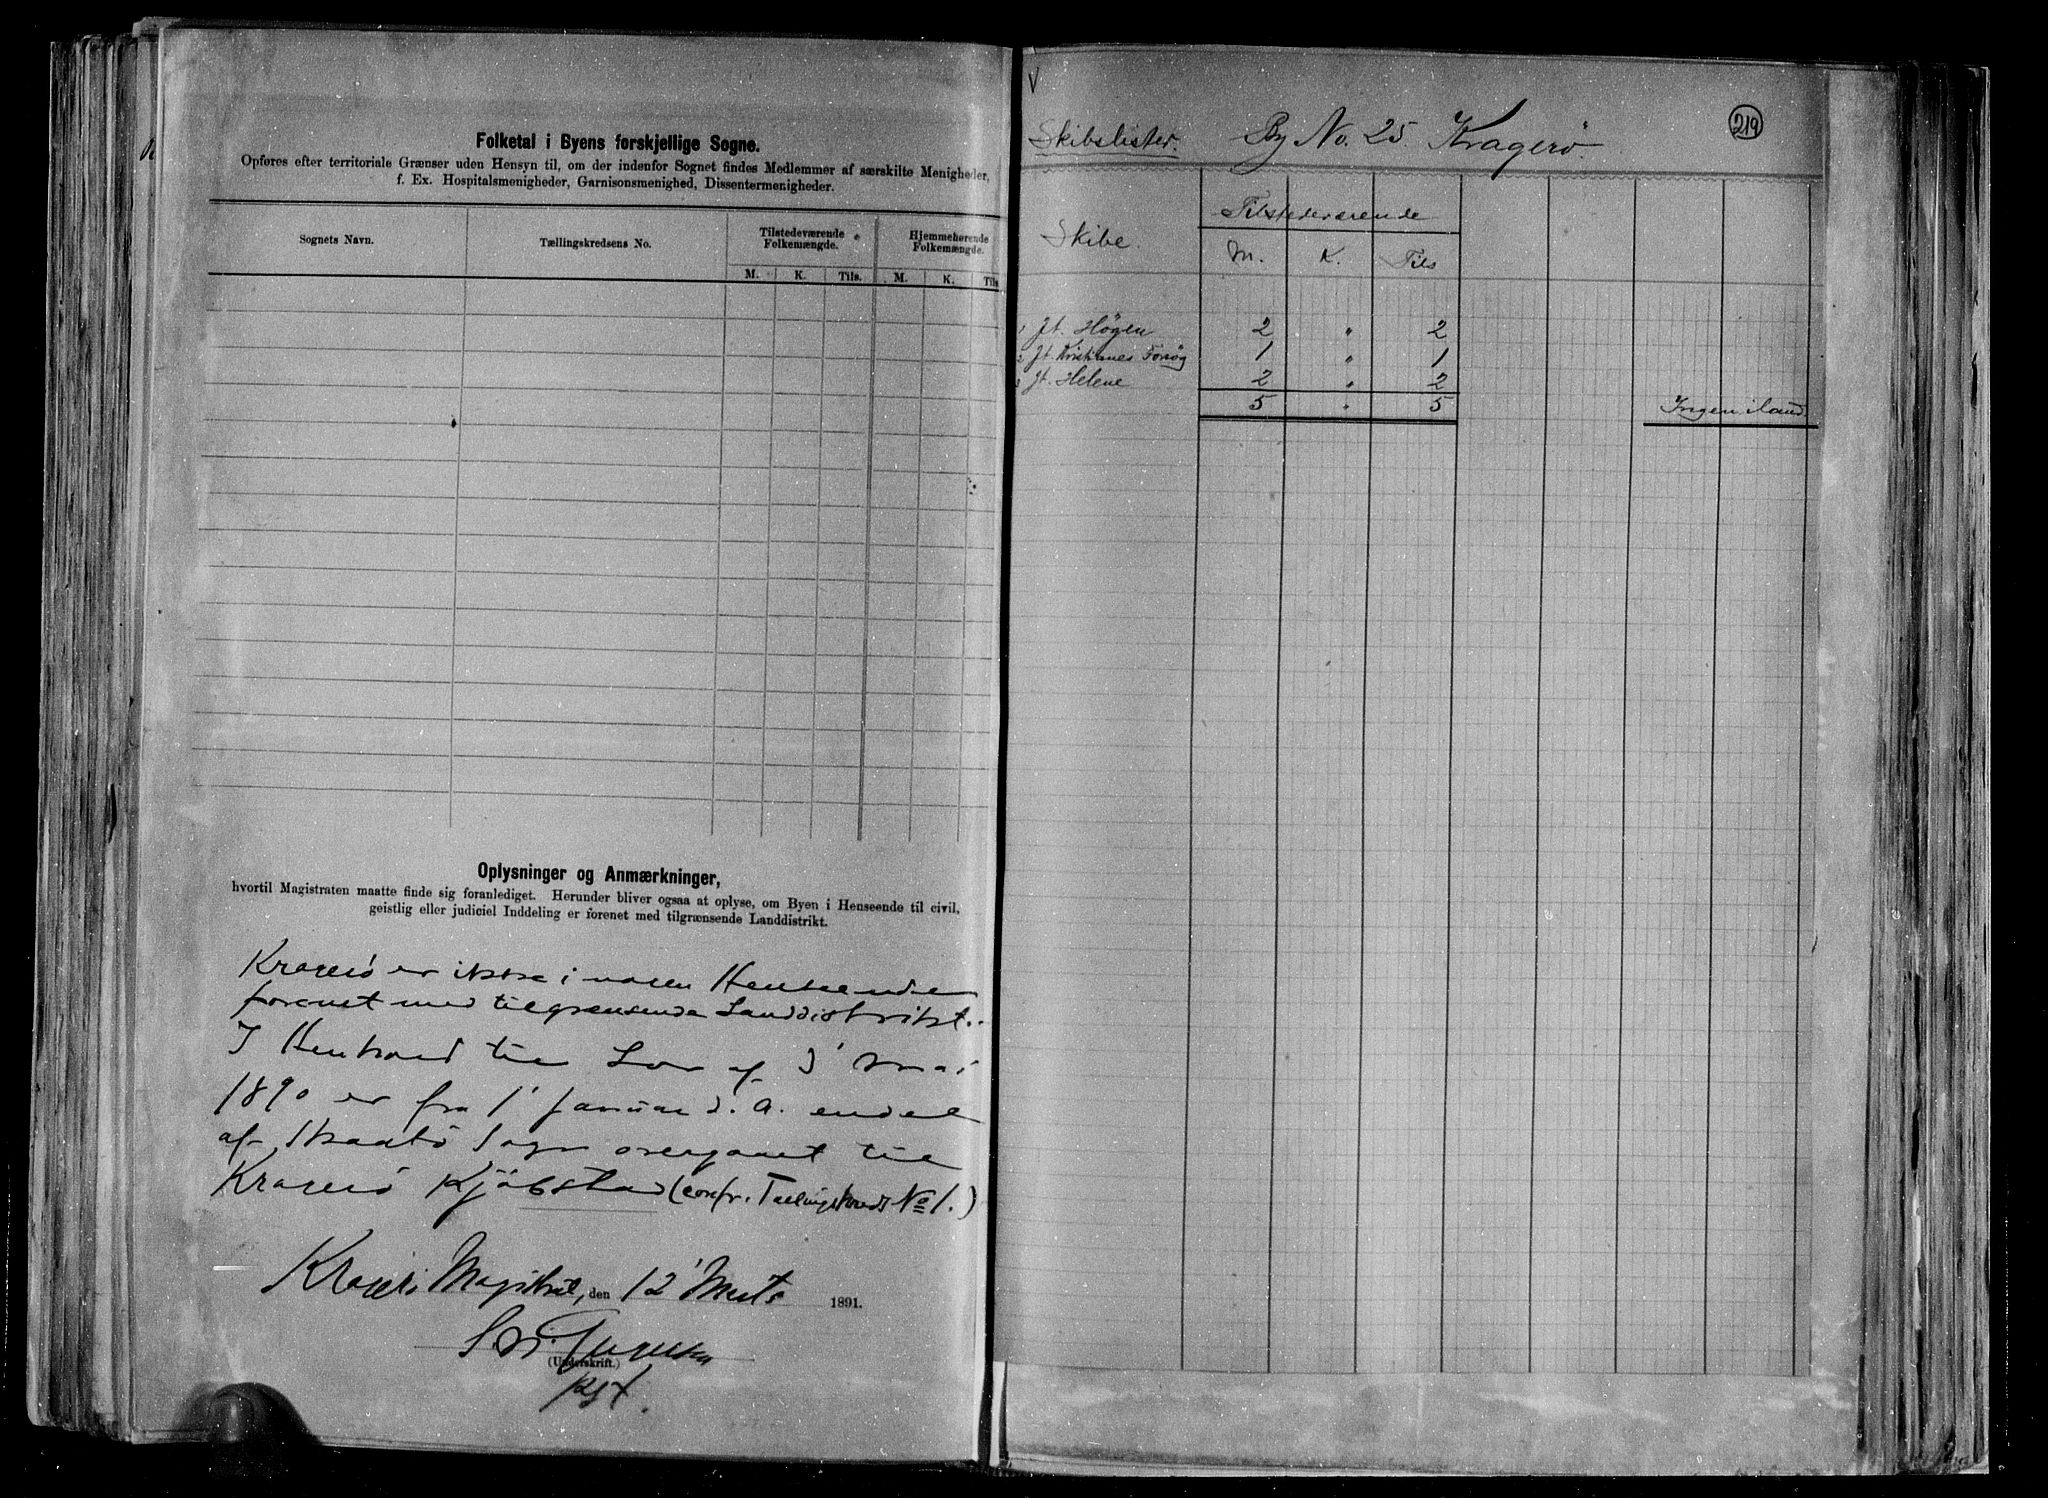 Folketal i Byens forskjellige Sogne.
Opføres efter territoriale Grænser uden Hensyn til, om der indenfor Sognet findes Medlemmer af særskilte Menigheder,
f. Ex. Hospitalsmenigheder, Garnisonsmenighed, Dissentermenigheder.
Sognets Navn.
Tællingskredsens No.
Tilstedeværende Folkemængde.
Hjemmehørende Folkemængde.
M. K. Tils. M. K. Tils
Oplysninger og Anmærkninger,
hvortil Magistraten maatte finde sig foranlediget. Herunder bliver ogsaa at oplyse, om Byen i Henseende til civil,
geistlig eller judiciel Inddeling er forenet med tilgrænsende Landdistrikt.
Kragerø er ikke i nogen Henseende
forenet med tilgrænsende Landdistrikt.
I Henhold til Lov af 3' Mai
1890 er fra 1' Januar d. A. endel
af Skaatø Sogn overgaaet til
Kragerø Kjøbstad (confr. Tællingskreds No 1.)
Kragerø Magistrat, den 12' Marts 1891.
(Underskrift.)
V
219
Skibslister. By No. 25 Kragerø.
Skibe.
Tilstedeværende
M. K. Tils
1 Jt. Høgen 2 " 2
2 Jt. Kristianes Forsøg 1 " 1
3 Jt. Helene 2 " 2
5 " 5 Ingen iland.